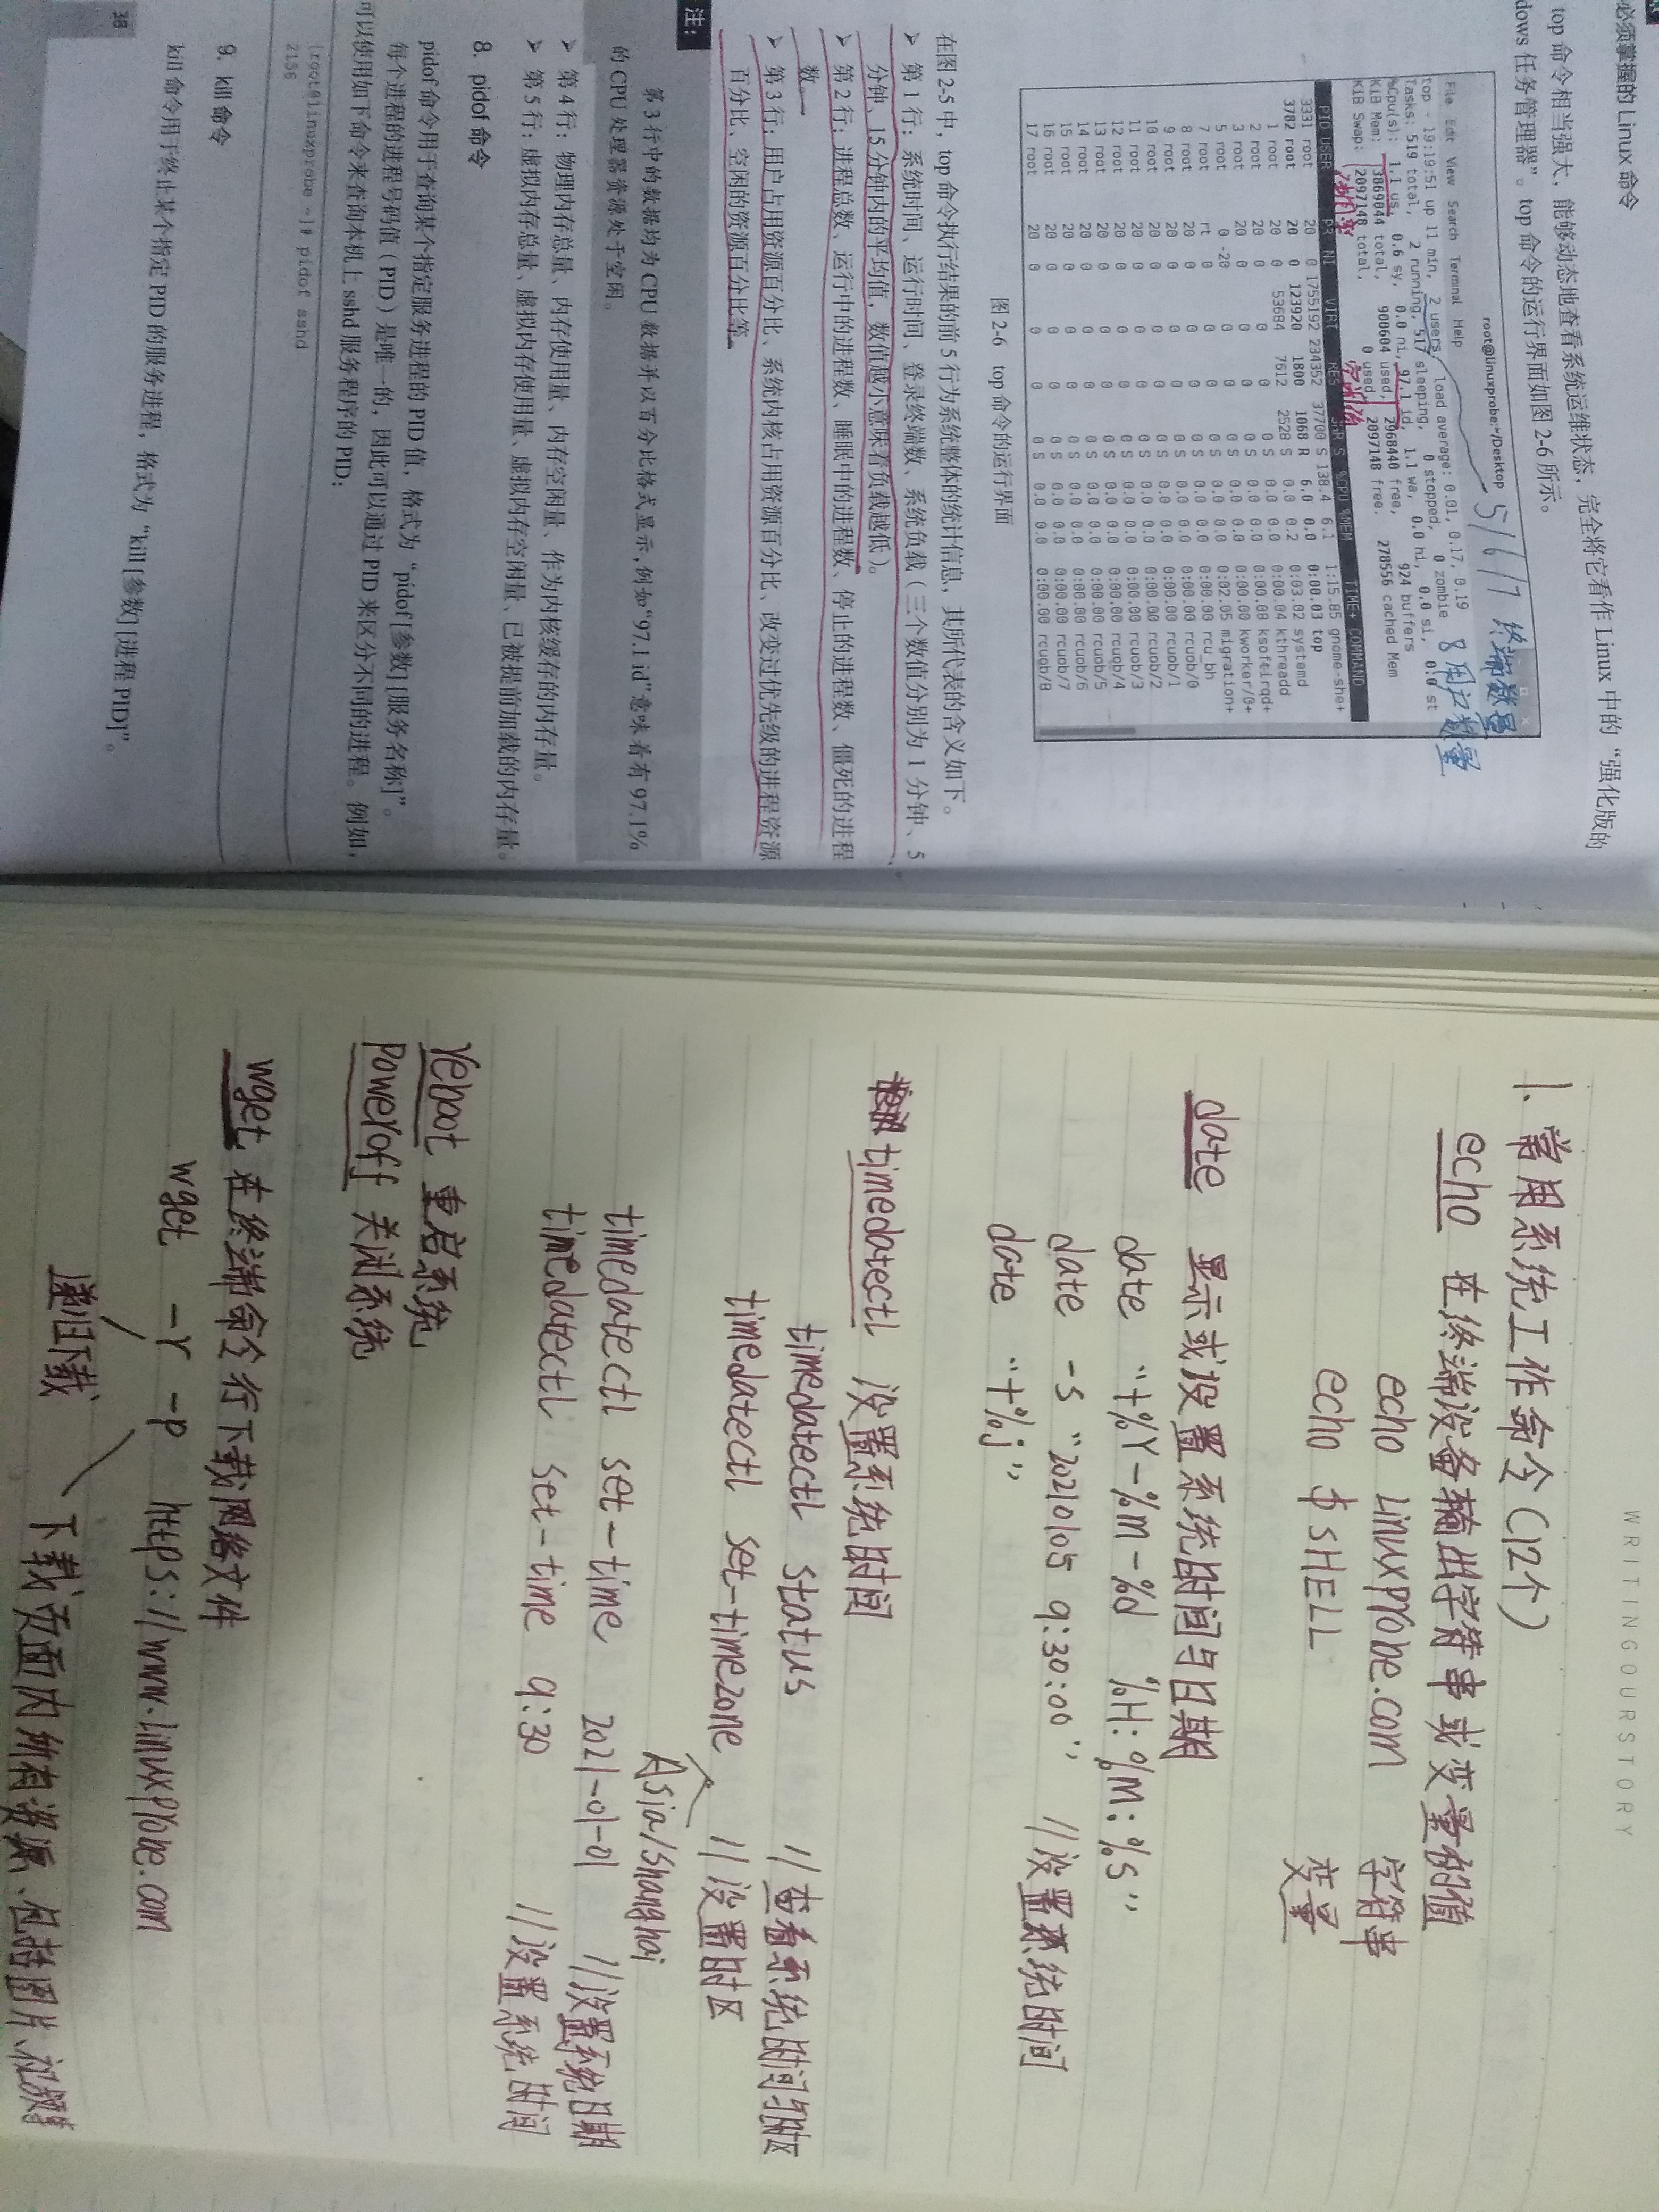 必须掌握的 Linux 命令
top 命令相当强大，能够动态地查看系统运维状态，完全将它看作 Linux 中的“强化版的
dows 任务管理器”。top 命令的运行界面如图 2-6 所示。
root@linuxprobe:~/Desktop
5/6/7 终端数量
8 用户数量
File Edit View Search Terminal Help
top - 19:19:51 up 11 min, 2 users, load average: 0.01, 0.17, 0.19
Tasks: 519 total, 2 running, 517 sleeping, 0 stopped, 0 zombie
%Cpu(s): 1.1 us, 0.6 sy, 0.0 ni, 97.1 id, 1.1 wa, 0.0 hi, 0.0 si, 0.0 st
KiB Mem: 3869044 total, 900604 used, 2968440 free, 924 buffers
KiB Swap: 2097148 total, 0 used, 2097148 free. 278556 cached Mem
PID USER PR NI VIRT RES SHR S %CPU %MEM TIME+ COMMAND
3331 root 20 0 1755192 234352 37700 S 138.4 6.1 1:15.85 gnome-she+
3782 root 20 0 123920 1800 1068 R 6.0 0.0 0:00.03 top
1 root 20 0 53684 7612 2528 S 0.0 0.2 0:03.02 systemd
2 root 20 0 0 0 0 S 0.0 0.0 0:00.04 kthreadd
3 root 20 0 0 0 0 S 0.0 0.0 0:00.08 ksoftirqd+
5 root 0 -20 0 0 0 S 0.0 0.0 0:00.00 kworker/0+
7 root rt 0 0 0 0 S 0.0 0.0 0:02.05 migration+
8 root 20 0 0 0 0 S 0.0 0.0 0:00.00 rcu_bh
9 root 20 0 0 0 0 S 0.0 0.0 0:00.00 rcuob/0
10 root 20 0 0 0 0 S 0.0 0.0 0:00.00 rcuob/1
11 root 20 0 0 0 0 S 0.0 0.0 0:00.00 rcuob/2
12 root 20 0 0 0 0 S 0.0 0.0 0:00.00 rcuob/3
13 root 20 0 0 0 0 S 0.0 0.0 0:00.00 rcuob/4
14 root 20 0 0 0 0 S 0.0 0.0 0:00.00 rcuob/5
15 root 20 0 0 0 0 S 0.0 0.0 0:00.00 rcuob/6
16 root 20 0 0 0 0 S 0.0 0.0 0:00.00 rcuob/7
17 root 20 0 0 0 0 S 0.0 0.0 0:00.00 rcuob/8
图 2-6 top 命令的运行界面
在图 2-5 中，top 命令执行结果的前 5 行为系统整体的统计信息，其所代表的含义如下。
➢ 第 1 行：系统时间、运行时间、登录终端数、系统负载（三个数值分别为 1 分钟、5
分钟、15 分钟内的平均值，数值越小意味着负载越低）。
➢ 第 2 行：进程总数、运行中的进程数、睡眠中的进程数、停止的进程数、僵死的进程
数。
➢ 第 3 行：用户占用资源百分比、系统内核占用资源百分比、改变过优先级的进程资源
百分比、空闲的资源百分比等。
注：
第 3 行中的数据均为 CPU 数据并以百分比格式显示，例如“97.1 id”意味着有 97.1%
的 CPU 处理器资源处于空闲。
➢ 第 4 行：物理内存总量、内存使用量、内存空闲量、作为内核缓存的内存量。
➢ 第 5 行：虚拟内存总量、虚拟内存使用量、虚拟内存空闲量、已被提前加载的内存量。
8. pidof 命令
pidof 命令用于查询某个指定服务进程的 PID 值，格式为“pidof [参数] [服务名称]”。
每个进程的进程号码值（PID）是唯一的，因此可以通过 PID 来区分不同的进程。例如，
可以使用如下命令来查询本机上 sshd 服务程序的 PID：
[root@linuxprobe ~]# pidof sshd
2156
9. kill 命令
kill 命令用于终止某个指定 PID 的服务进程，格式为“kill [参数] [进程 PID]”。
38
WRITINGOURSTORY
1、常用系统工作命令（12个）
echo 在终端设备输出字符串或变量的值
echo Linuxprobe.com 字符串
echo $SHELL 变量
date 显示或设置系统时间与日期
date “+%Y-%m-%d %H:%M:%S”
date -s “20210105 9:30:00” //设置系统时间
date “+%j”
timedatectl 设置系统时间
timedatectl status //查看系统时间与时区
timedatectl set-timezone //设置时区
Asia/Shanghai
timedatectl set-time 2021-01-01 //设置系统日期
timedatectl set-time 9:30 //设置系统时间
reboot 重启系统
poweroff 关闭系统
wget 在终端命令行下载网络文件
wget -r -p https://www.linuxprobe.com
递归下载
下载页面内所有资源、包括图片、视频等